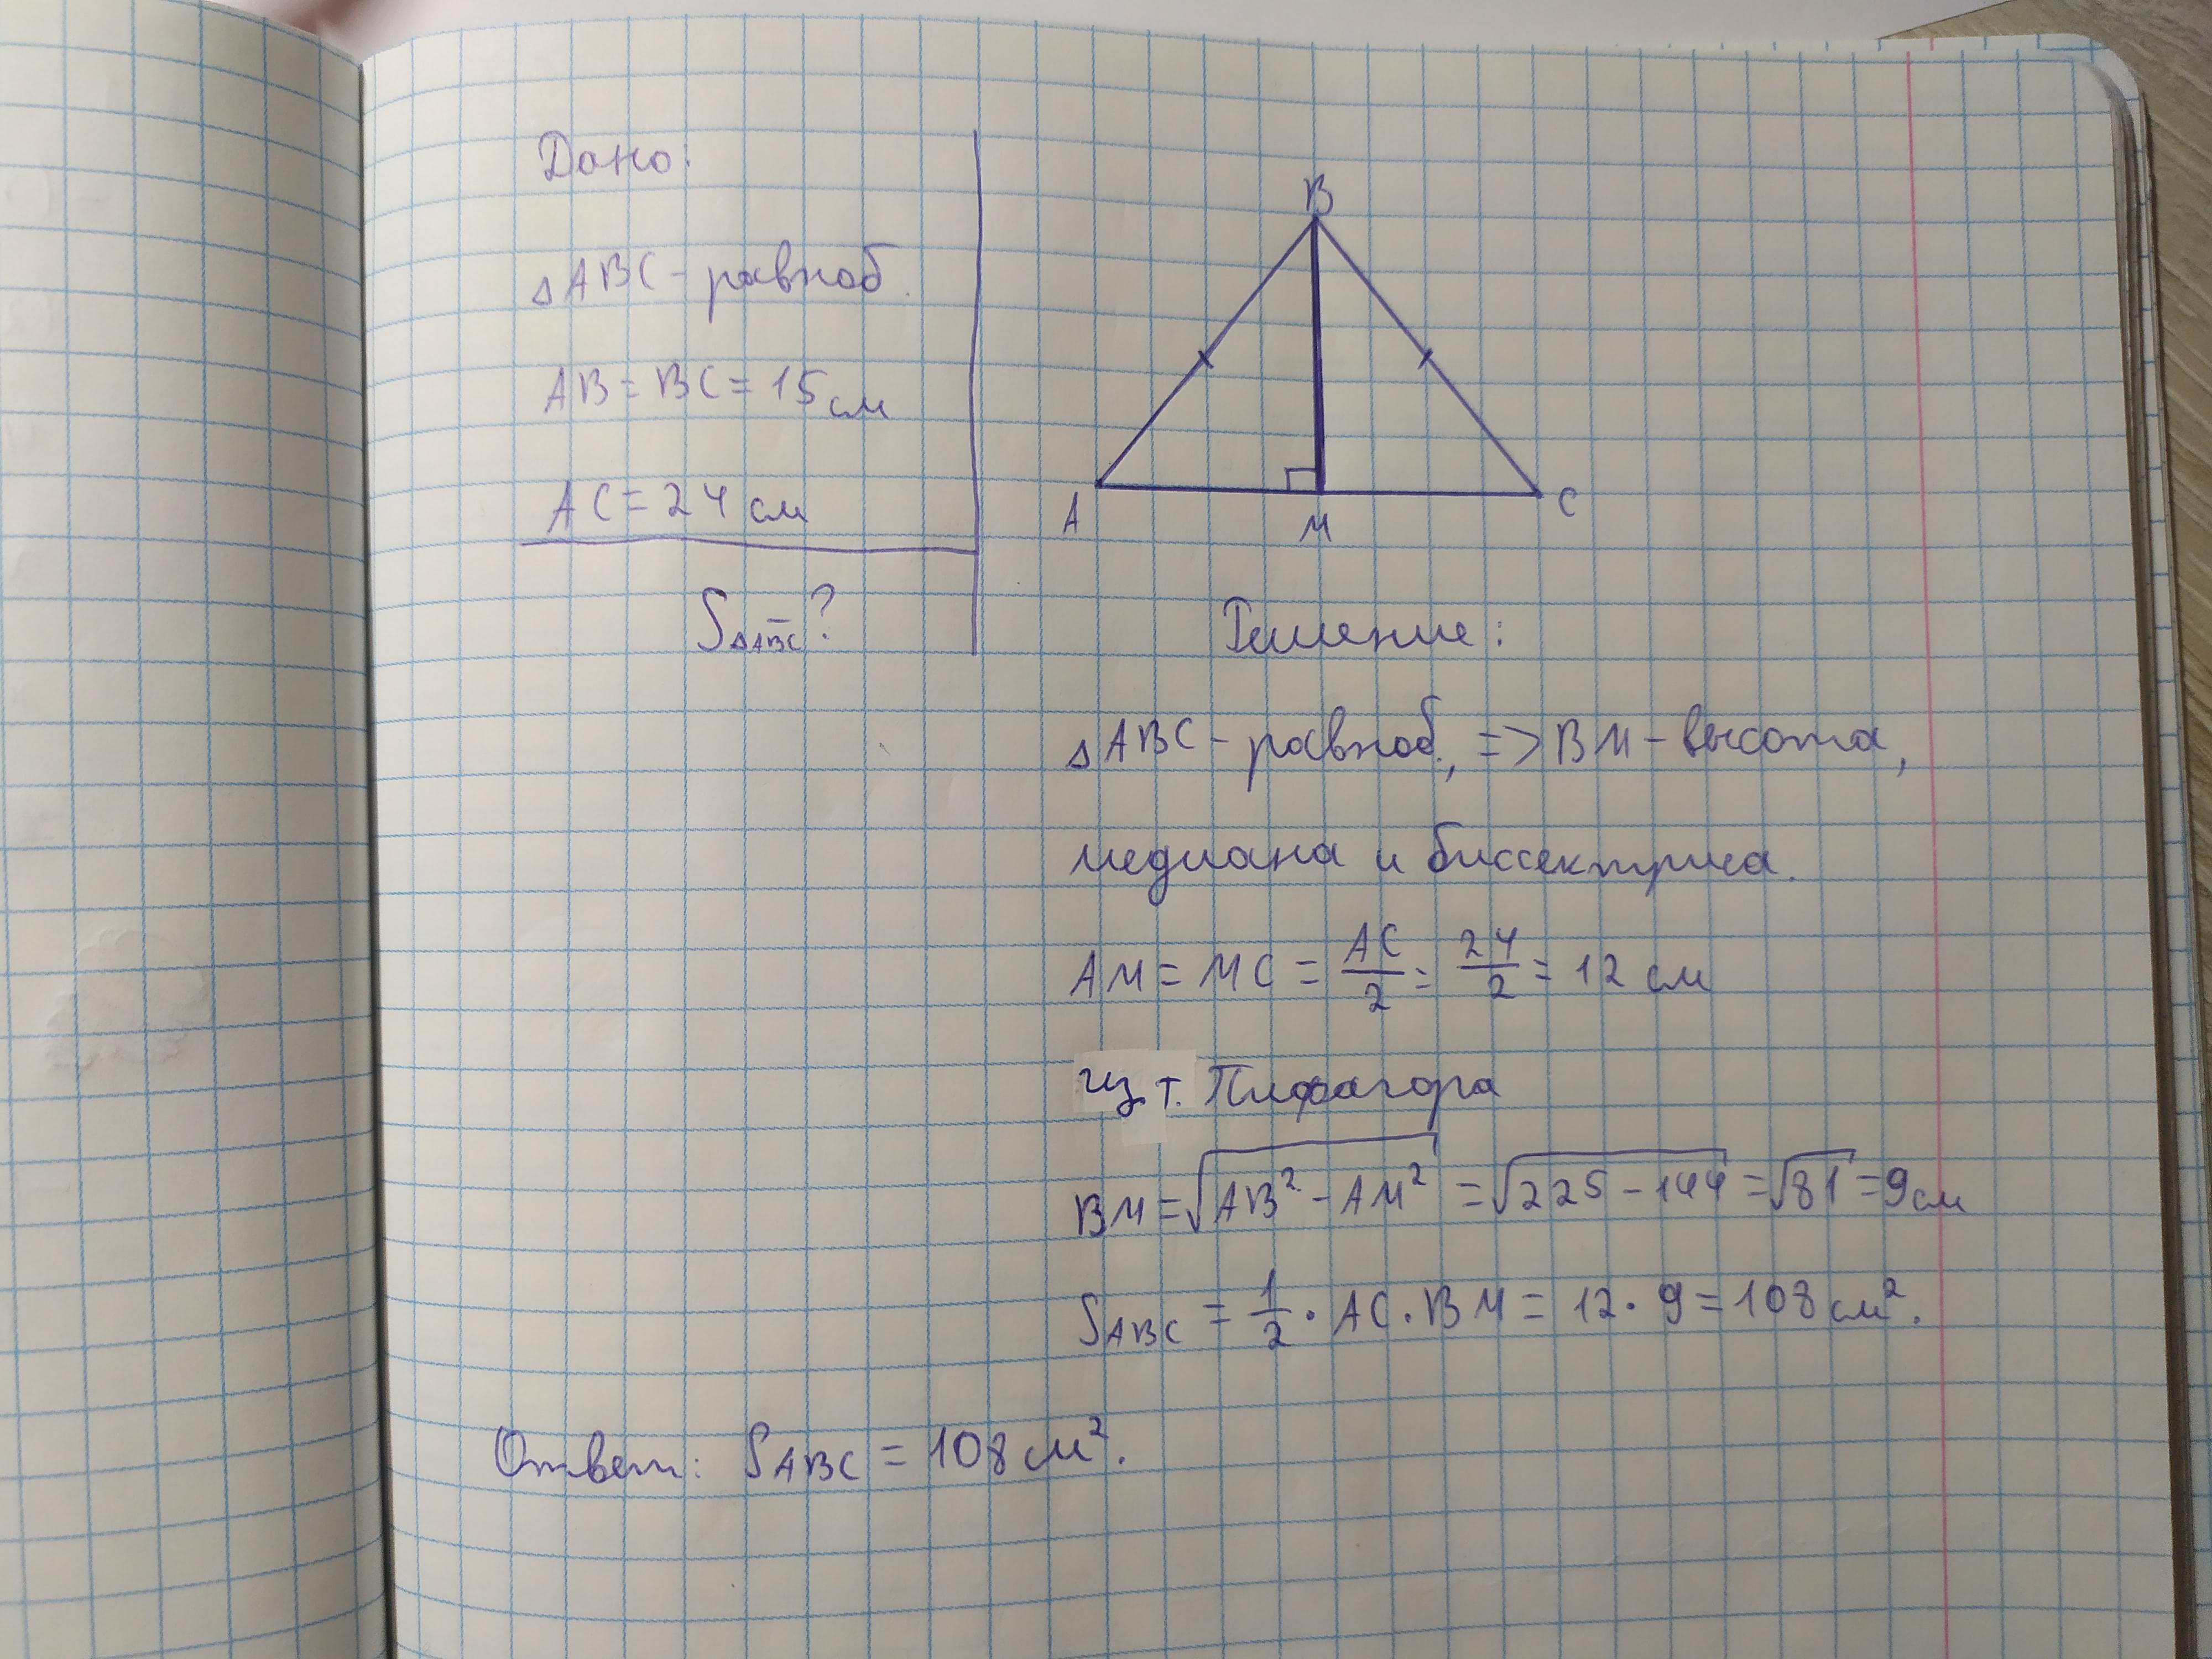 Дано:
△ABC - равноб.
AB = BC = 15 см
AC = 24 см
S△ABC - ?
B
A
M
C
Решение:
△ABC - равноб., => BM - высота,
медиана и биссектриса.
AM = MC = AC/2 = 24/2 = 12 см
из т. Пифагора
BM = √(AB² - AM²) = √(225 - 144) = √81 = 9 см
S ABC = 1/2 · AC · BM = 12 · 9 = 108 см².
Ответ: S ABC = 108 см².